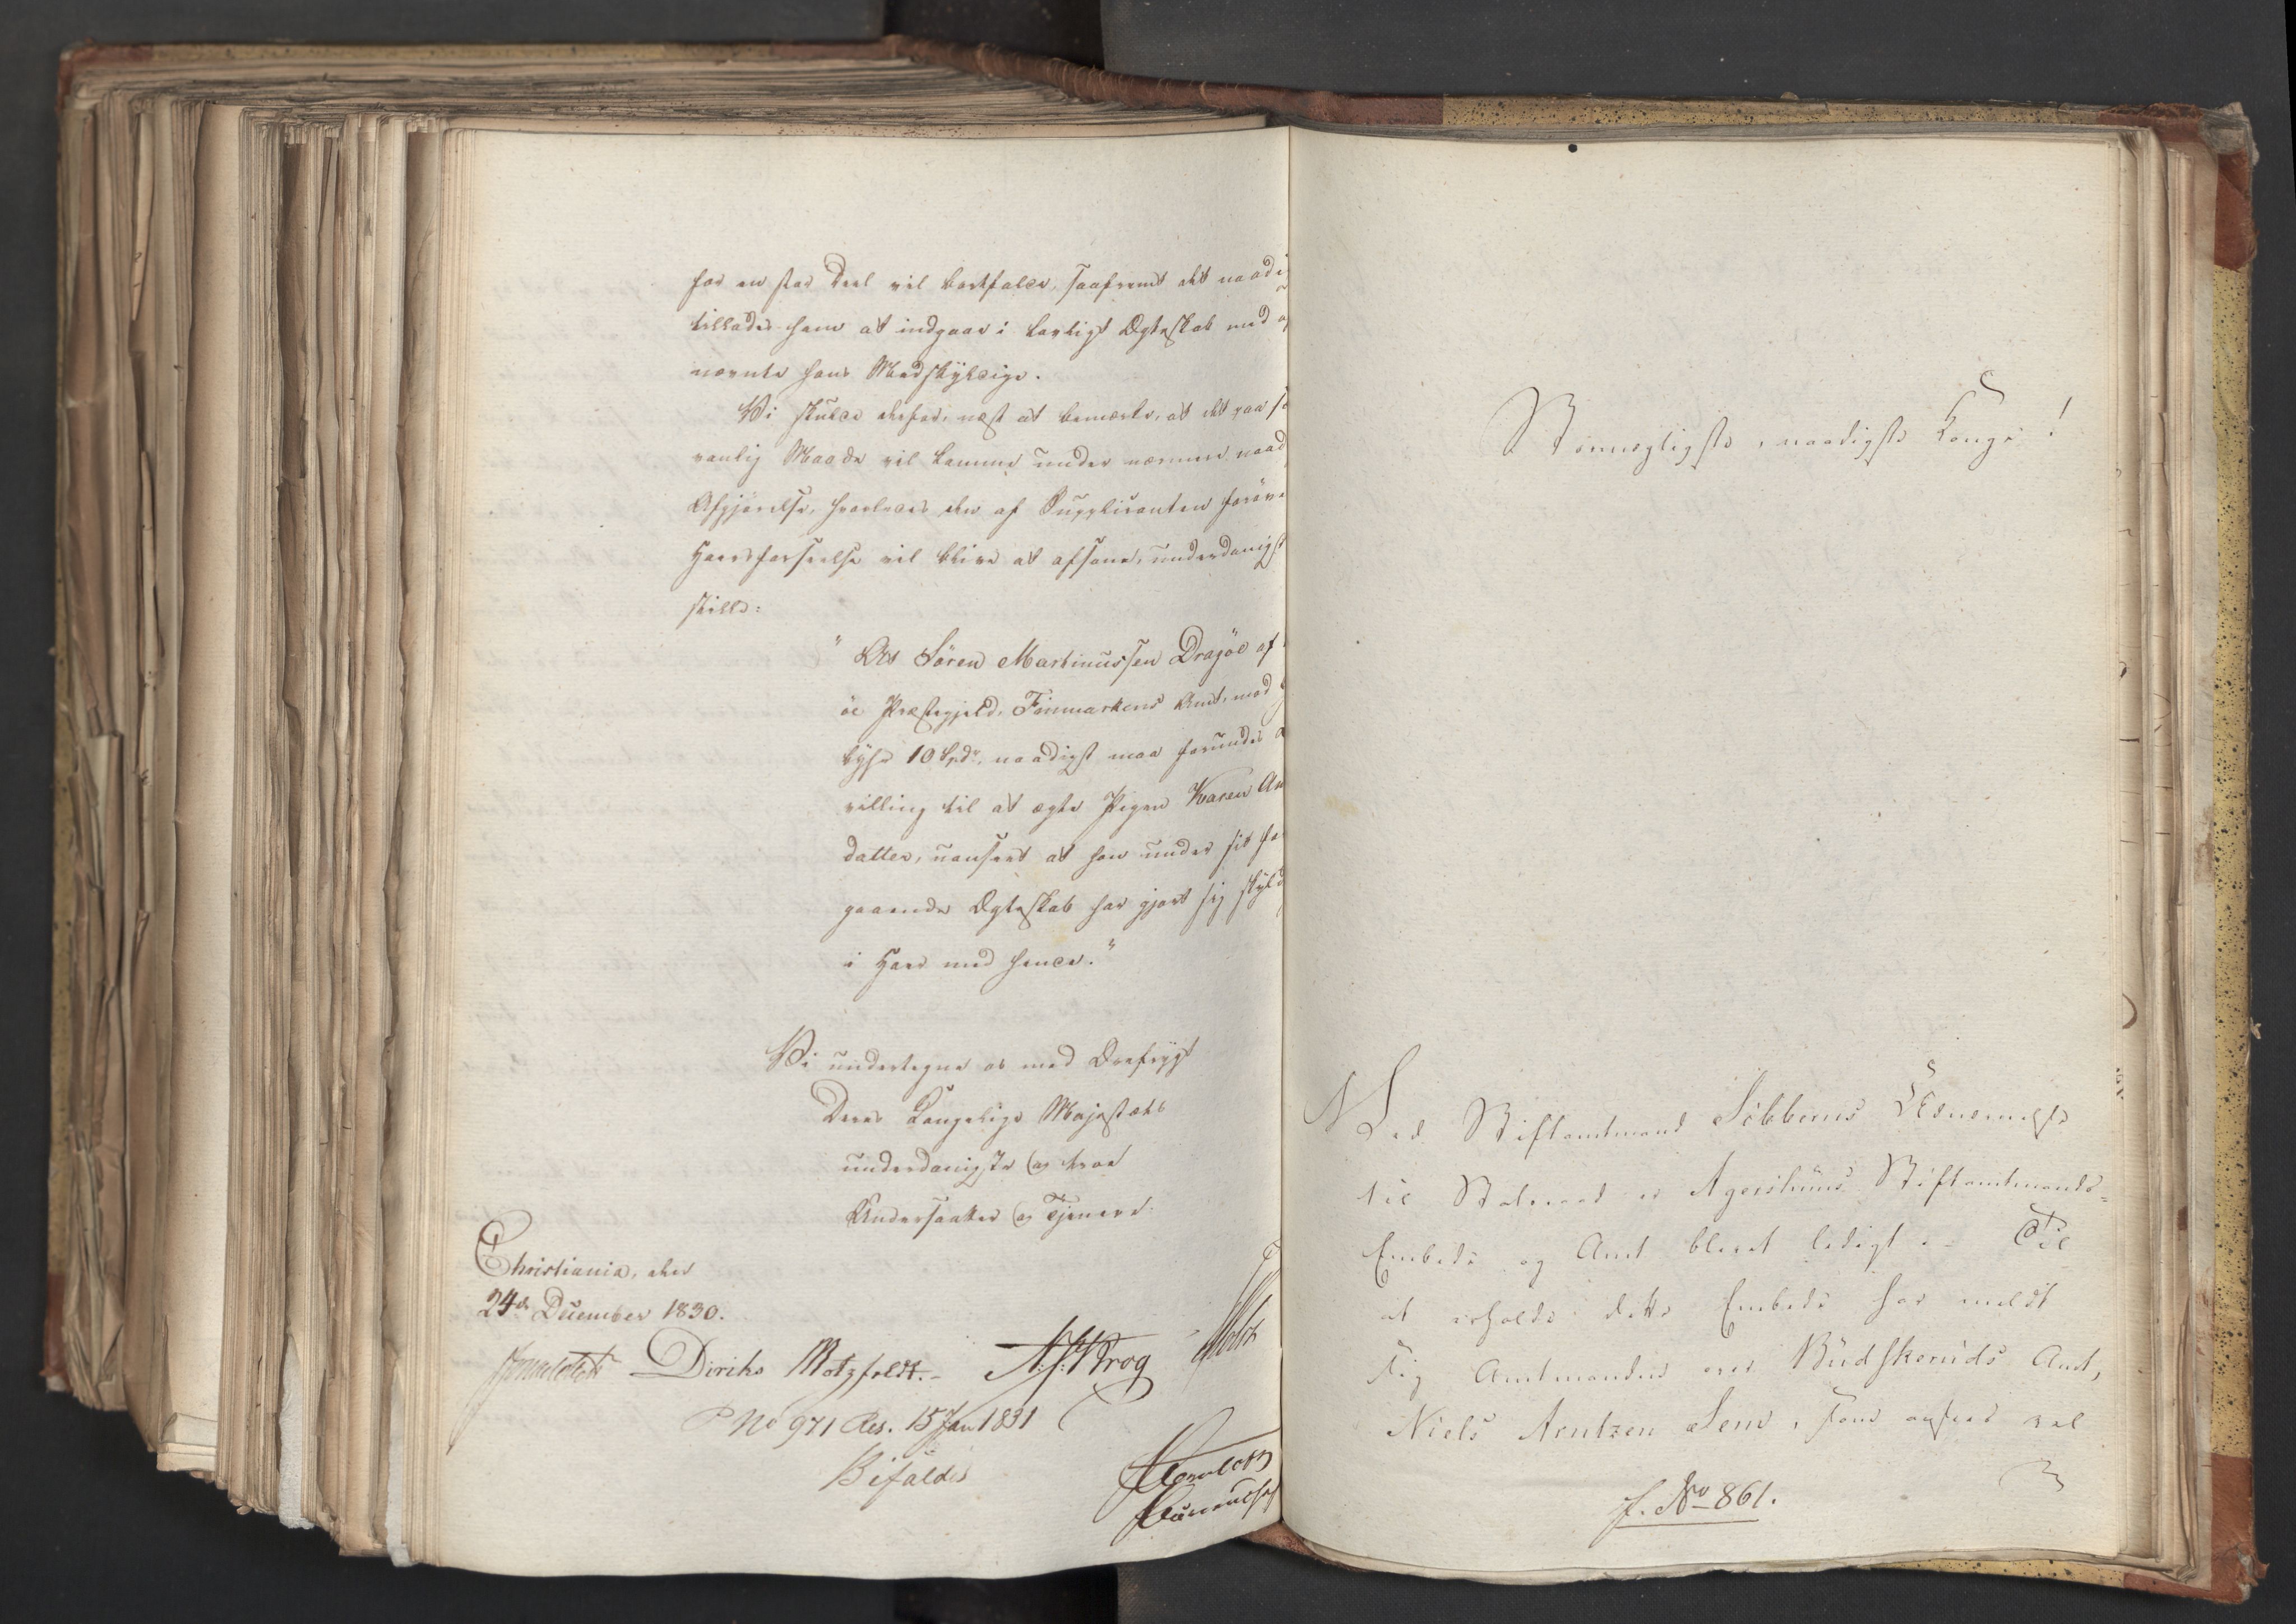 for en stor Deel vil bortfalde, saafremt det naadi
tillades ham at indgaae i lovligt Ægteskab med
nævnte hans Medskyldige.
Vi skulle derfor, næst at bemærke, at det paa
vanlig Maade vil komme under nærmere naad
Afgjørelse, hvorledes den af Supplicanten forøve
Hoersforseelse vil blive at afsone, underdanigst
stille:
"At Sören Martinussen Dragöe af
öe Præstegjeld, Finmarkens Amt, mod
byhr 10 Spdr, naadigst maa forundes
villing til at ægte Pigen Karen An
datter, uanseet at han under sit fo
gaaende Ægteskab har gjort sig skyld
i Hoer med hende."
Vi undertegne os med Ærefrygt
Deres Kongelige Majestæts
underdanigste og troe
Undersaatter og Tjenere
Christiania, den
24de December 1830.
Diriks Motzfeldt. Krog
P No 971 Res. 15 Jan 1831
Bifaldes
Stormægtigste, naadigste Konge!
Ved Stiftamtmand Sibberns Udnævnelse
til Statsraad er Agershuus Stiftamtmands-
Embede og Amt blevet ledigt. Til
at erholde dette Embede har meldt
sig Amtmanden over Budskeruds Amt,
Niels Arntzen Sem, som anseer vel
J. No 861.